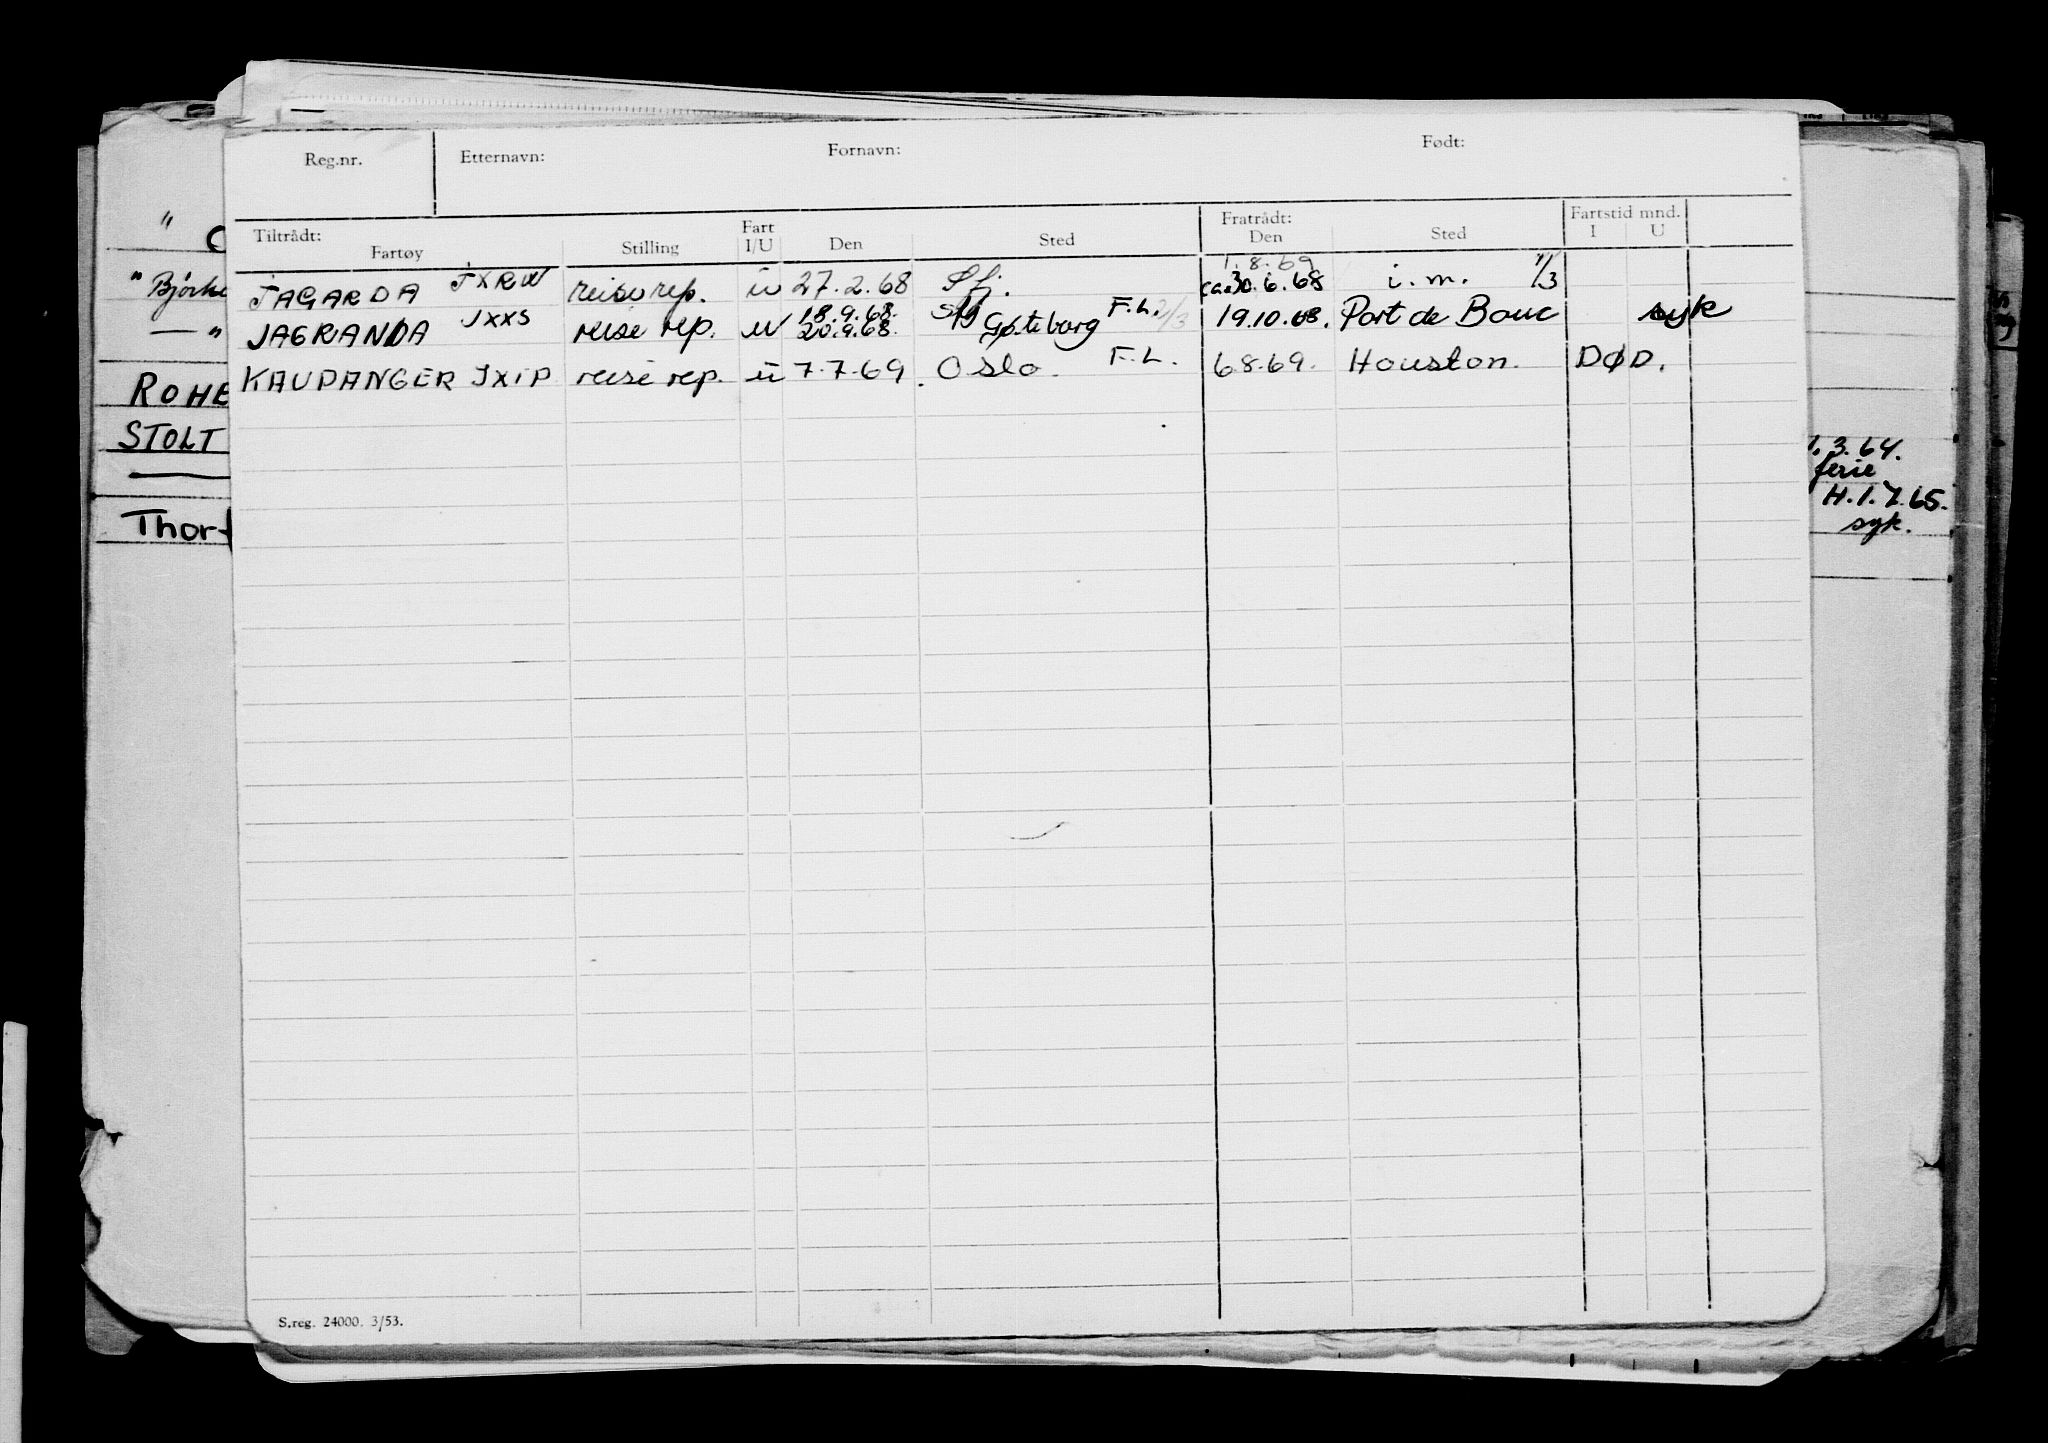 Reg.nr. Etternavn: Fornavn: Født:
Tiltrådt: Fart Fratrådt: Fartstid mnd.
Fartøy Stilling I/U Den Sted Den Sted I U
1.8.69
JAGARDA JXRW reise rep. u 27.2.68 Sfj. ca 30.6.68 i.m. 1/3
18.9.68.
JAGRANDA JXXS reise rep. u 20.9.68. Göteborg F.L. 2/3 19.10.68. Port de Bouc syk
KAUPANGER JXIP reise rep. u 7.7.69. Oslo. F.L. 6.8.69. Houston. DØD.
S.reg. 24000. 3/53.
"
" Bjørke
— "
ROHE
STOLT
Thorf
1.3.64.
ferie
H.1.7.65.
syk.